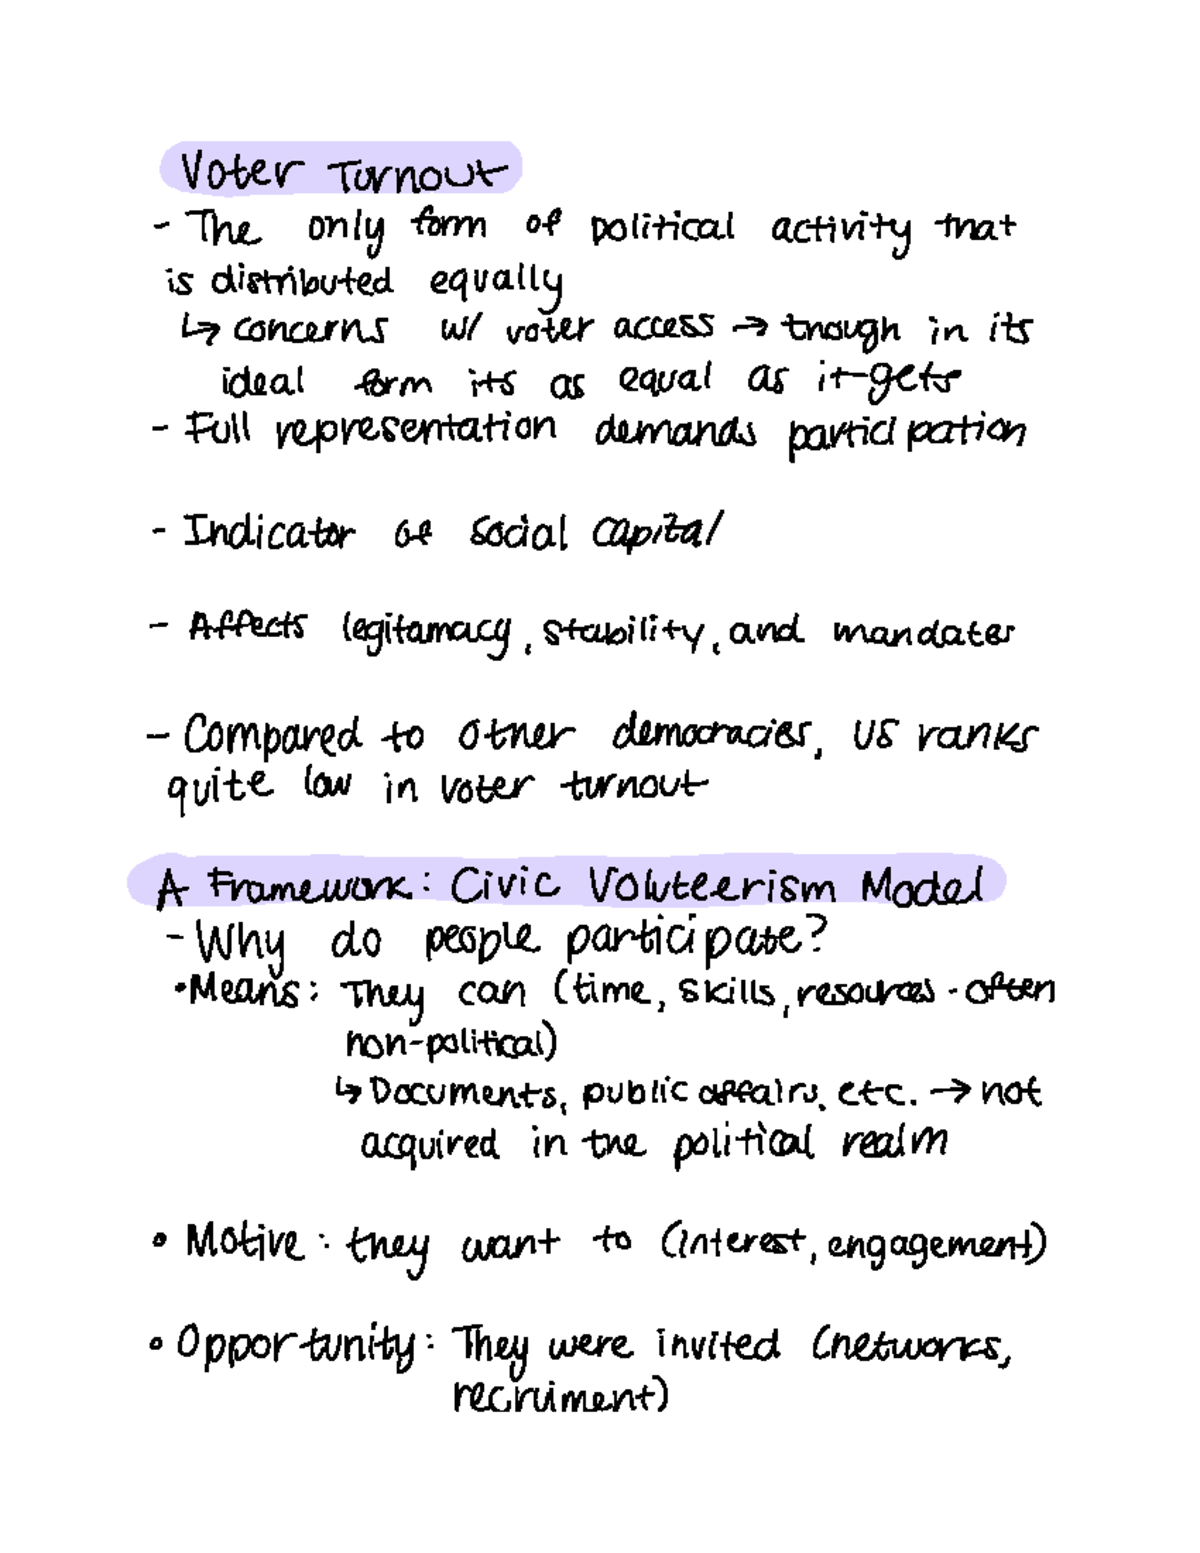 Voter Turnout
- The only form of political activity that
is distributed equally
↳ concerns w/ voter access → though in its
ideal form its as equal as it gets
- Full representation demands participation
- Indicator of social capital
- Affects legitamacy, stability, and mandates
- Compared to other democracies, US ranks
quite low in voter turnout
A Framework: Civic Voluteerism Model
- Why do people participate?
• Means: They can (time, skills, resources - often
non-political)
↳ Documents, public affairs, etc. → not
acquired in the political realm
• Motive: they want to (interest, engagement)
• Opportunity: They were invited (networks,
recruiment)